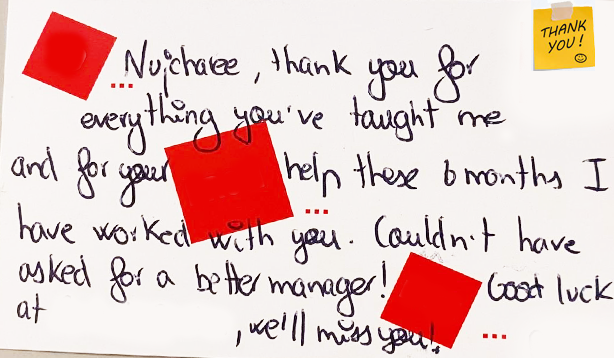 THANK
YOU!
... Nujcharee, thank you for
everything you've taught me
and for your help these 6 months I
...
have worked with you. Couldn't have
asked for a better manager! Good luck
at , we'll miss you! ...